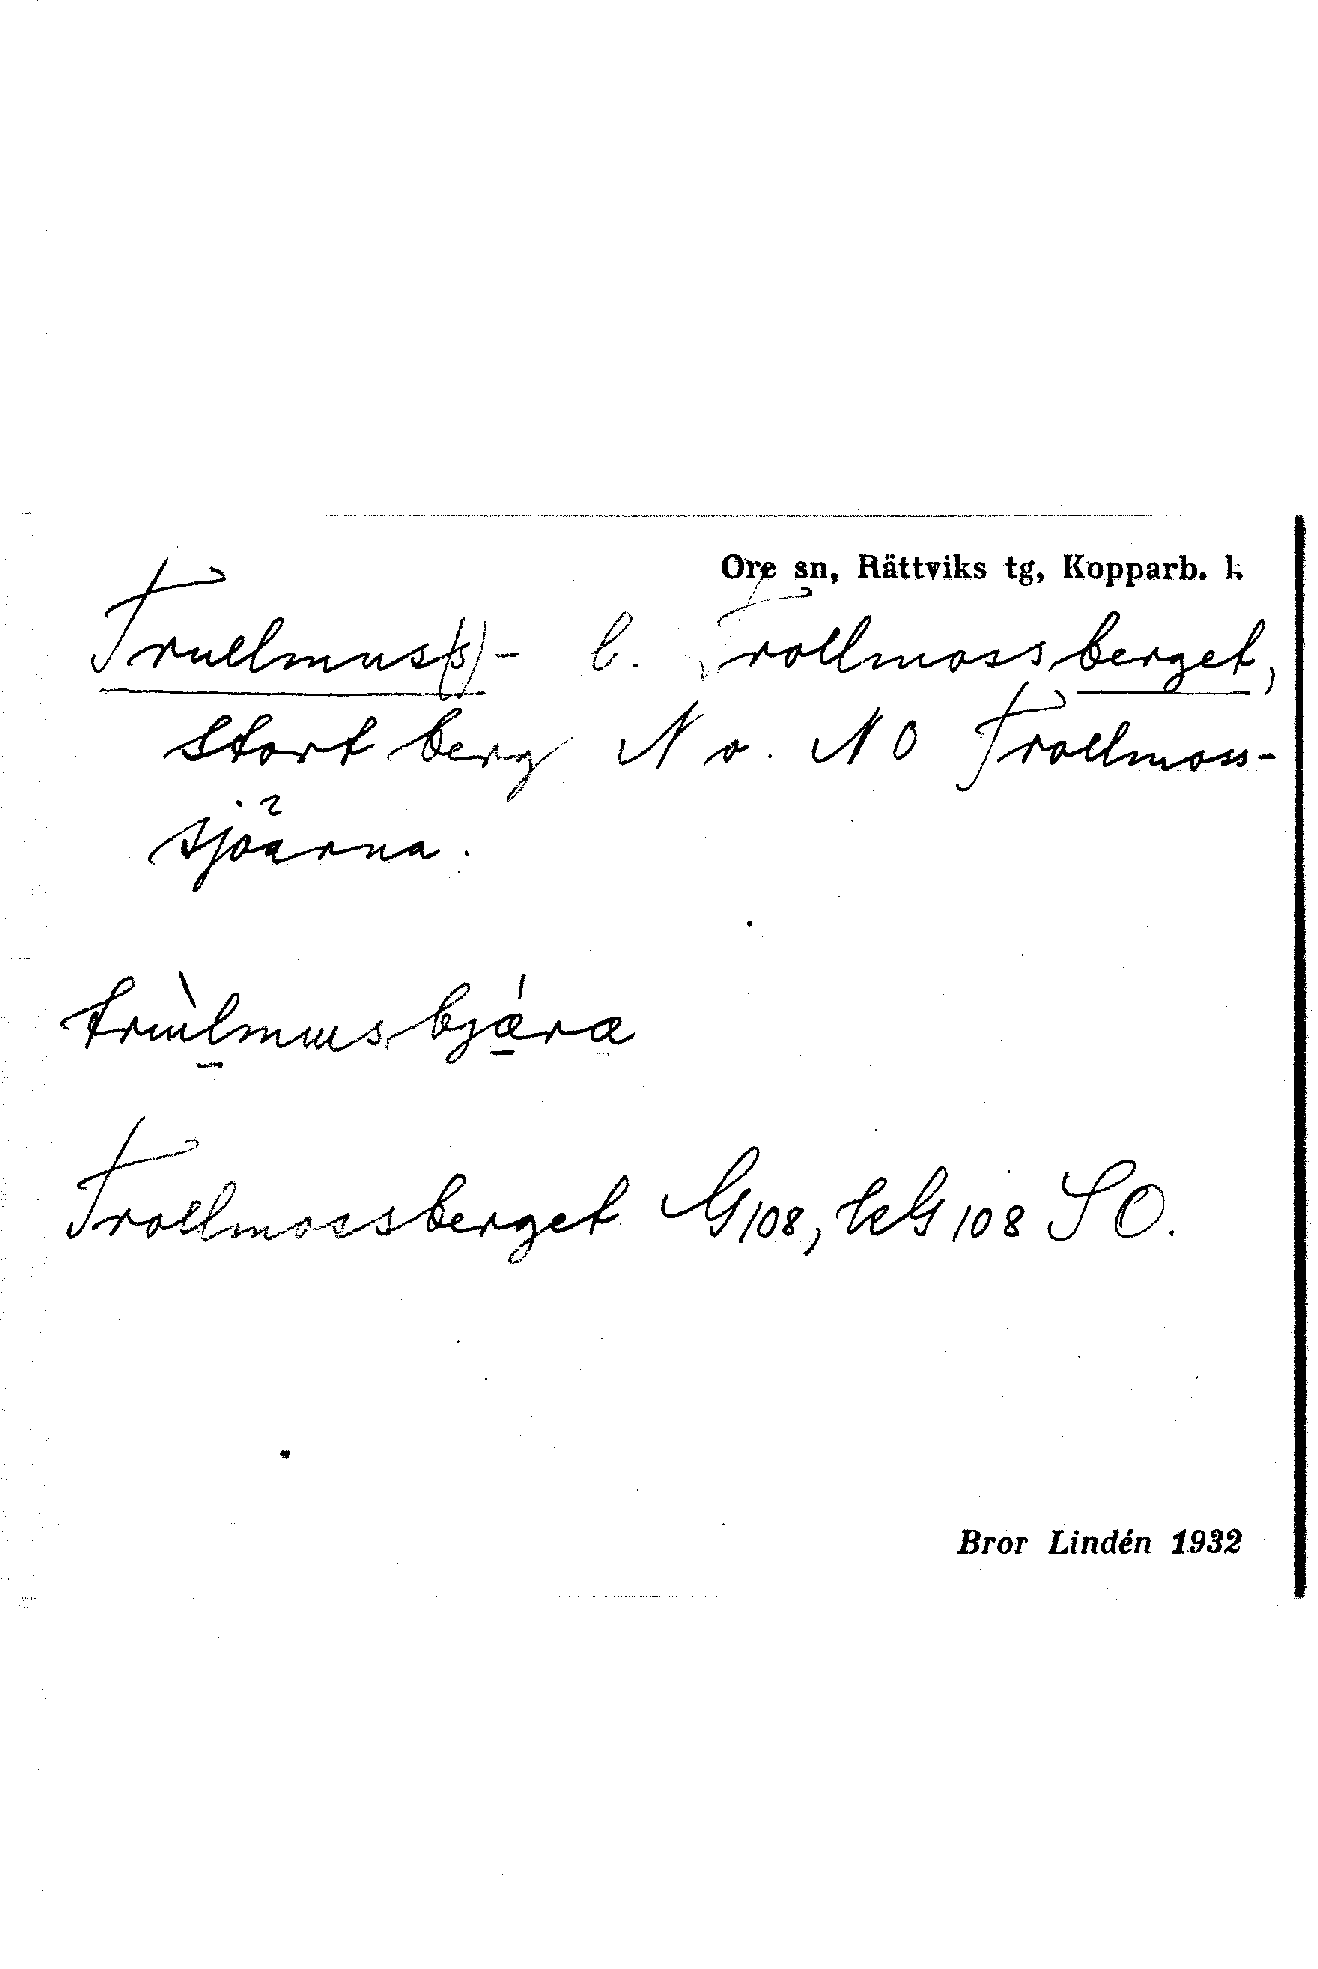 Ore sn, Rättviks tg, Kopparb. l.
Trullmus(s)- l. Trollmossberget,
stort berg N o. NO Trollmoss-
sjöarna.
trɯ̀lmɯsbjǽræ
Trollmossberget G108, kG108 SO.
Bror Lindén 1932